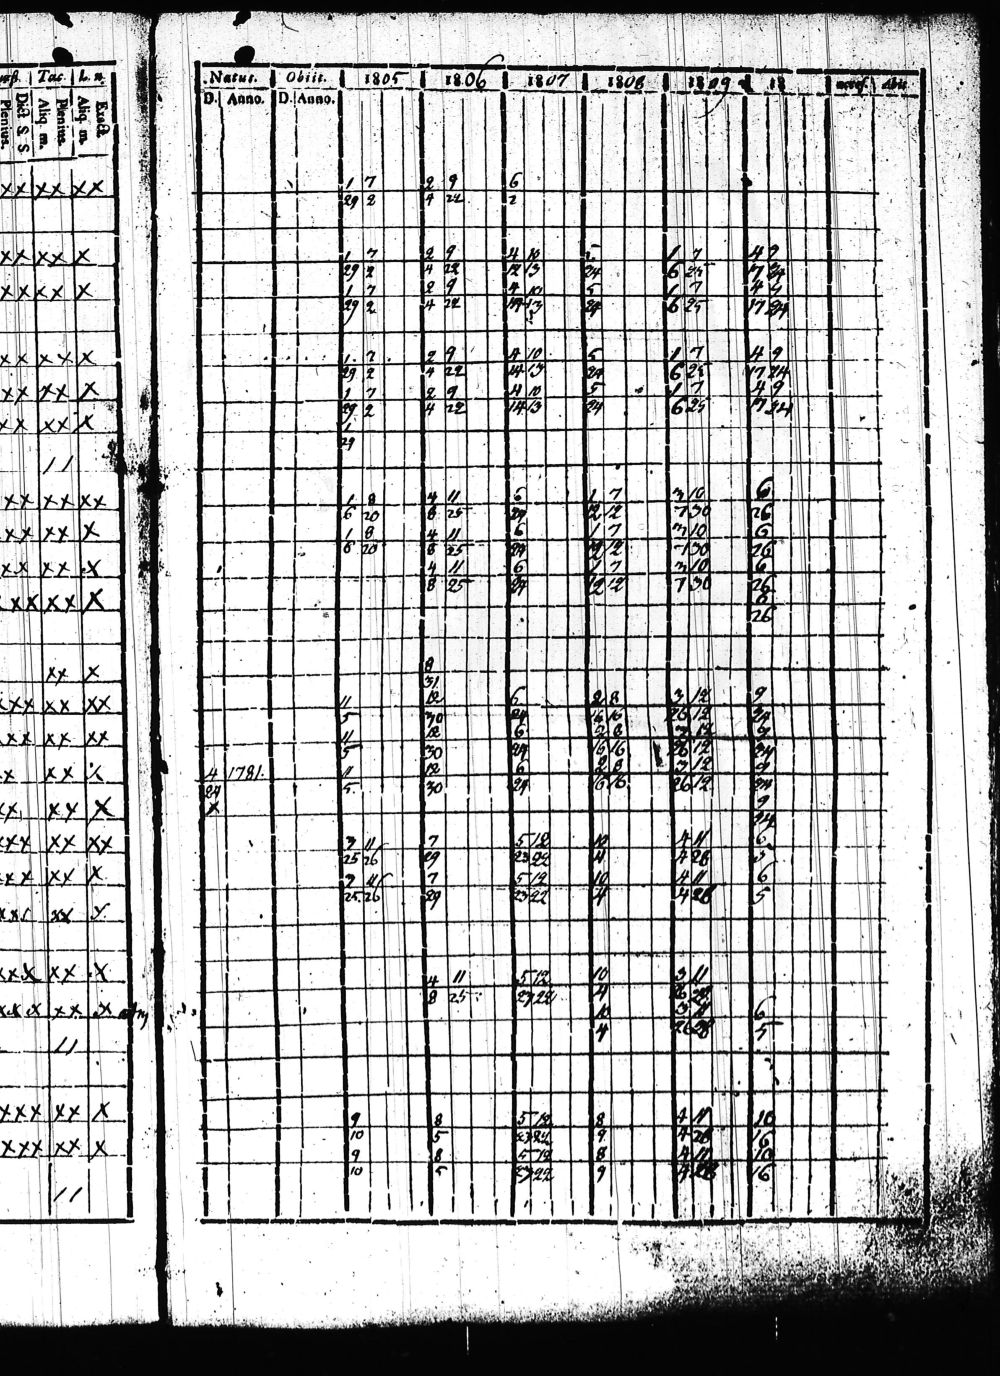 Tac. L. n.
Aliq. m. Plenius. Aliq. m. Exact.
Natus. Obiit. 1805 1806 1807 1808 1809 18 acces. abiit
D. Anno. D. Anno.
xx xx xx 1 7 2 9 6
29 2 4 22 2
xx xx x 1 7 2 9 4 10 5 1 7 4 9
29 2 4 22 12 13 24 6 25 17 24
xx xx x 1 7 2 9 4 10 5 1 7 4 9
29 2 4 22 14 13 24 6 25 17 24
xx xx x 1 7 2 9 4 10 5 1 7 4 9
29 2 4 22 14 13 24 6 25 17 24
xx xx x 1 7 2 9 4 10 5 1 7 4 9
29 2 4 22 14 13 24 6 25 17 24
xx xx x 1
29
11
xx xx xx 1 8 4 11 6 1 7 3 10 6
6 20 8 25 24 12 12 7 30 26
xxx xx x 1 8 4 11 6 1 7 3 10 6
6 20 8 25 24 12 12 7 30 26
xx xx x 4 11 6 1 7 3 10 6
8 25 24 12 12 7 30 26
xxx xx x 6
26
xx x 8
31
xxx xx xx 11 12 6 2 8 3 12 9
5 30 24 16 16 26 12 24
xxx xx xx 11 12 6 2 8 3 12 9
5 30 24 16 16 26 12 24
xx xx x 4 1781. 11 12 6 2 8 3 12 9
29 5 30 24 16 16 26 12 24
xx xx x x 9
24
xxx xx xx 3 11 7 5 12 10 4 11 6
25 26 29 23 22 4 4 28 5
xxx xx x 3 11 7 5 12 10 4 11 6
25 26 29 23 22 4 4 28 5
xxx xx x
xxx xx x 4 11 5 12 10 3 11
8 25 23 22 4 26 28
xxx xx x 10 3 11 6
4 26 28 5
11
xxx xx x 9 8 5 12 8 4 11 10
10 5 23 22 9 4 28 16
xxxx xx x 9 8 5 12 8 4 11 10
10 5 23 22 9 4 28 16
11